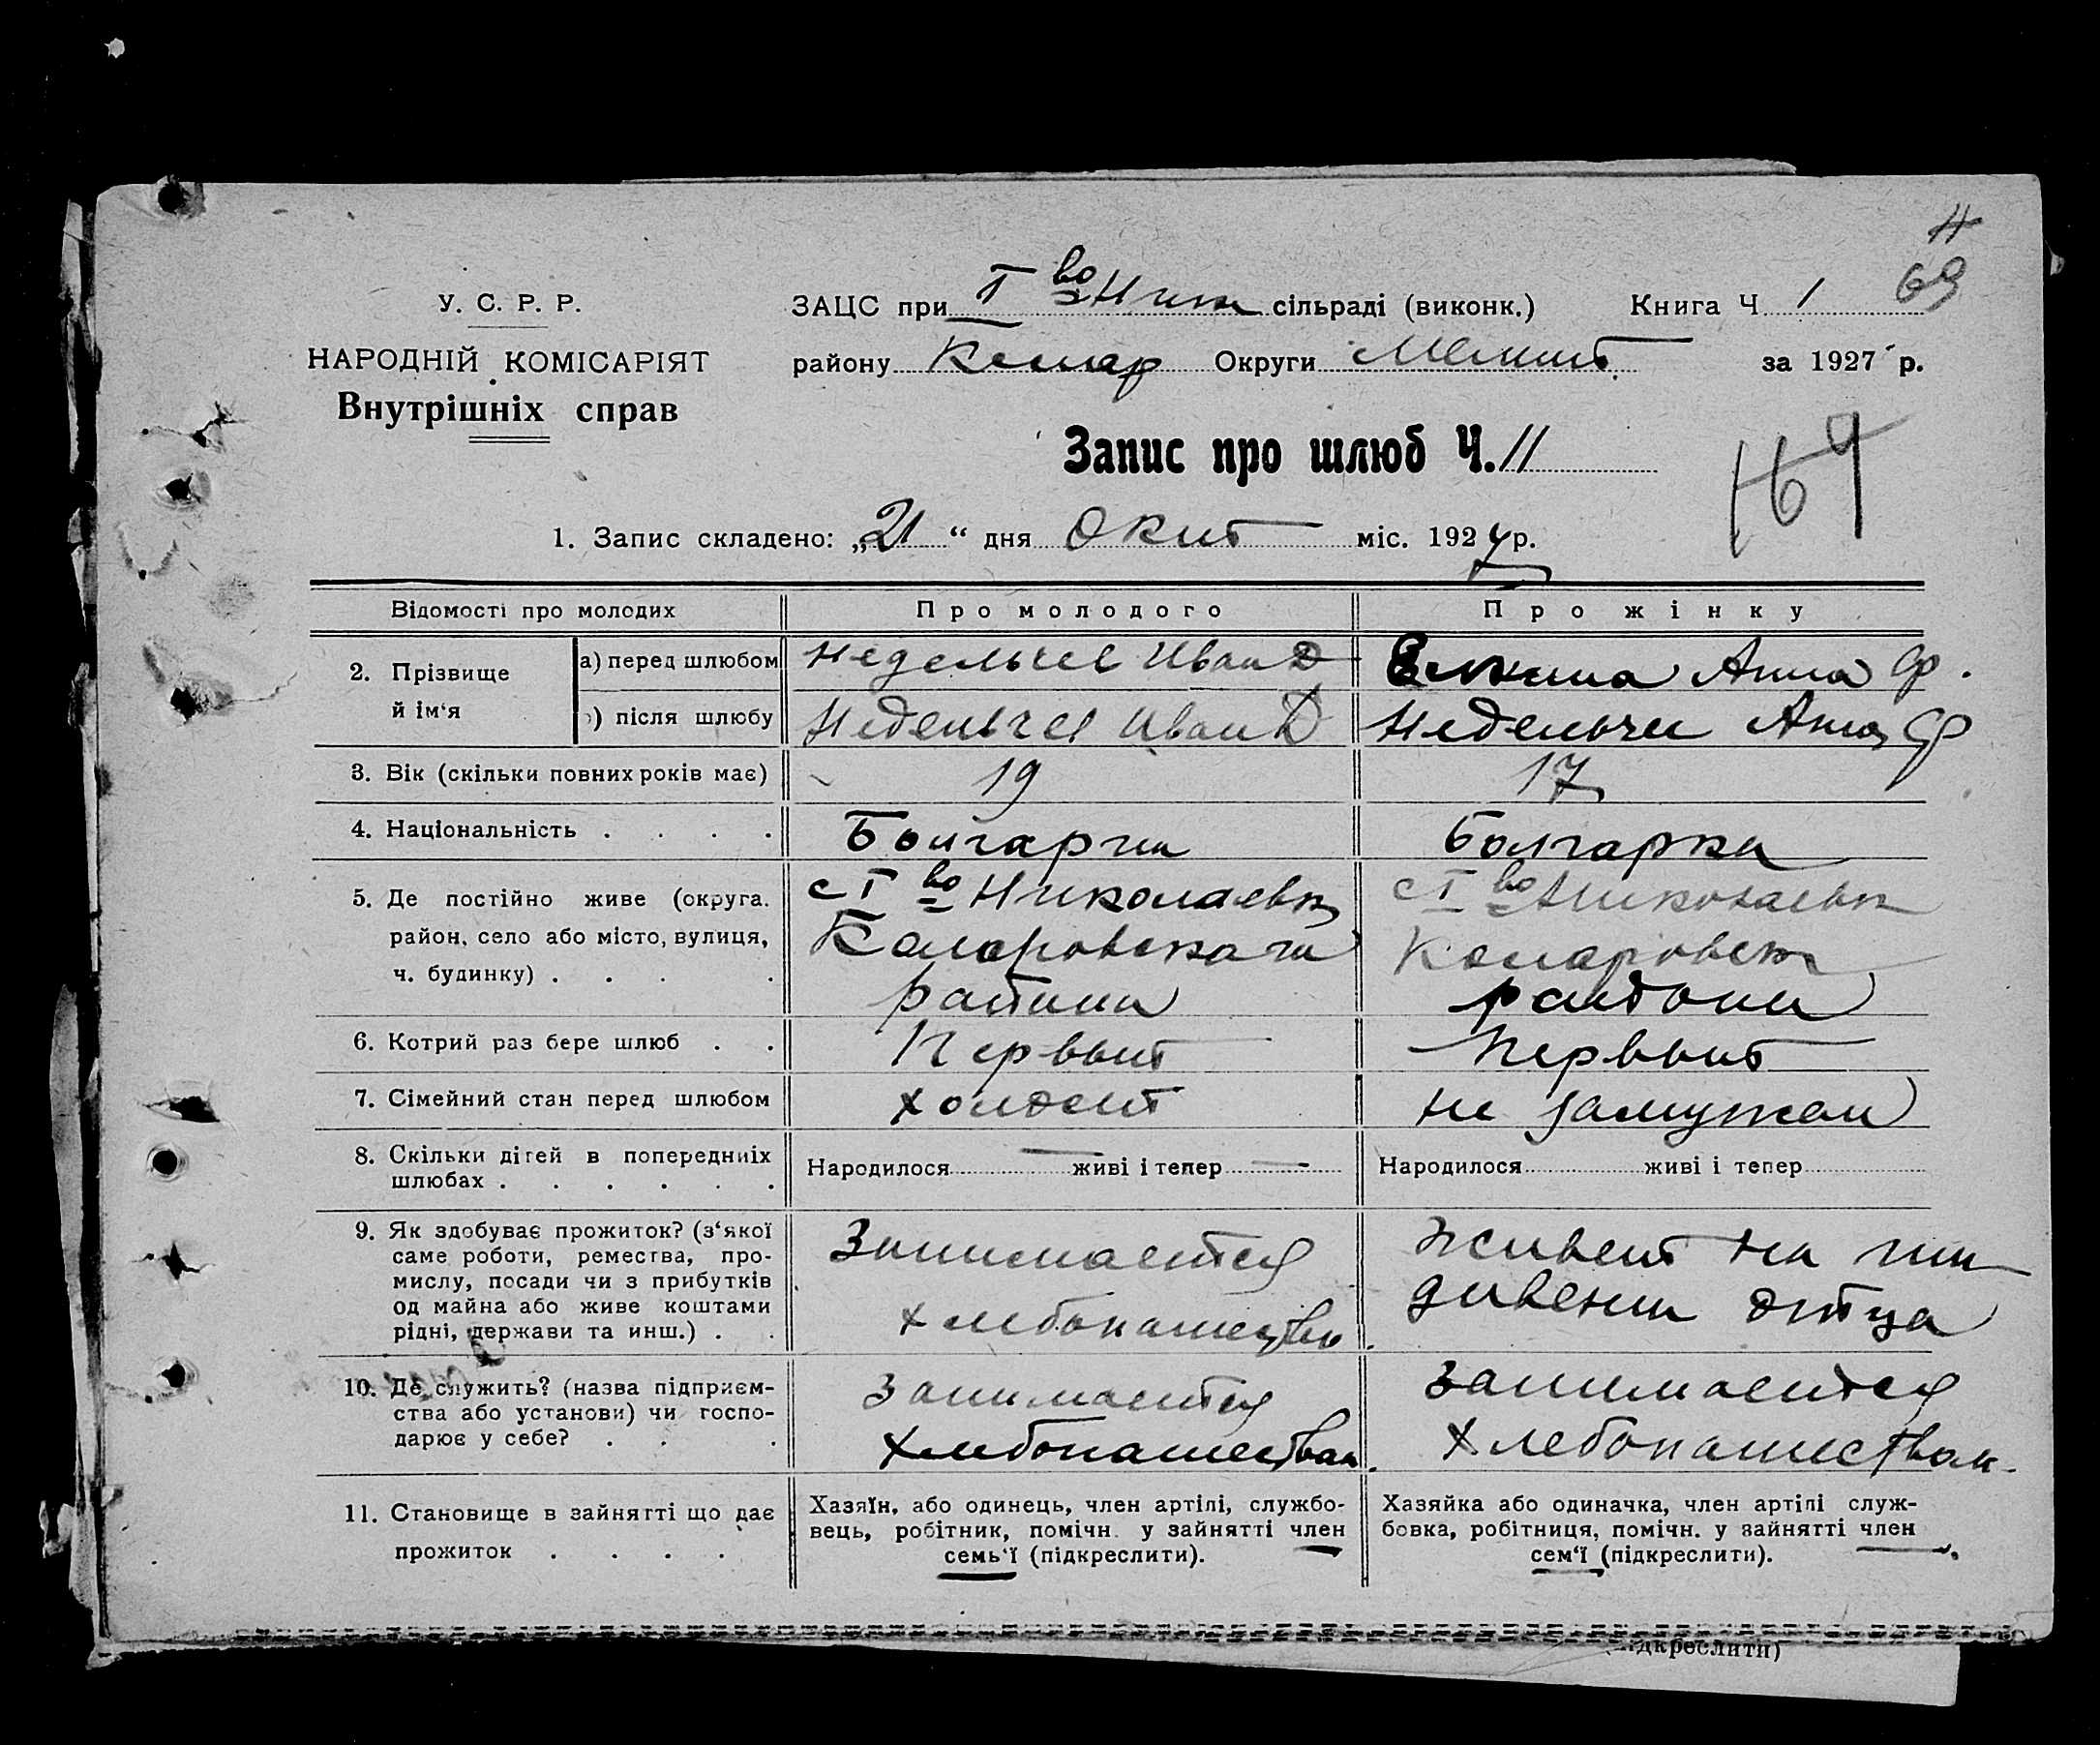 11
69
У. С. Р. Р.
ЗАЦС при І во Ник сільраді (виконк.) Книга Ч 1
НАРОДНІЙ КОМІСАРІЯТ
району Колар Округи Мелит за 1927 р.
Внутрішніх справ
Запис про шлюб Ч. 11
1. Запис складено: „21“ дня Окт міс. 1927 р.
Відомості про молодих Про молодого Про жінку
2. Прізвище й ім‘я
а) перед шлюбом Недельчев Иван Д Анна Ф.
б) після шлюбу Недельчев Иван Д Недельчев Анна Ф
3. Вік (скільки повних років має) 19 17
4. Національність . . . . Болгарин Болгарка
5. Де постійно живе (округа. с І во Николаевк с І во Николаевк
район, село або місто, вулиця, Коларовского Коларовск
ч. будинку) . . . . района района
6. Котрий раз бере шлюб . . Первый Первый
7. Сімейний стан перед шлюбом холост не замужем
8. Скільки дітей в попередніх Народилося — живі і тепер — Народилося живі і тепер
шлюбах . . . . . .
9. Як здобуває прожиток? (з‘якої Занимается живет на ижи-
саме роботи, ремества, про- хлебопашество дивении отца
мислу, посади чи з прибутків
од майна або живе коштами
рідні, держави та инш.) . .
10. Де служить? (назва підприєм- Занимается Занимается
ства або установи) чи госпо- хлебопашествам. хлебопашествам.
дарює у себе? . . .
11. Становище в зайнятті що дає Хазяїн, або одинець, член артілі, службо- Хазяйка або одиначка, член артілі служ-
прожиток . . . . вець, робітник, помічн. у зайнятті член бовка, робітниця, помічн. у зайнятті член
семь‘ї (підкреслити). сем‘ї (підкреслити).
підкреслити)